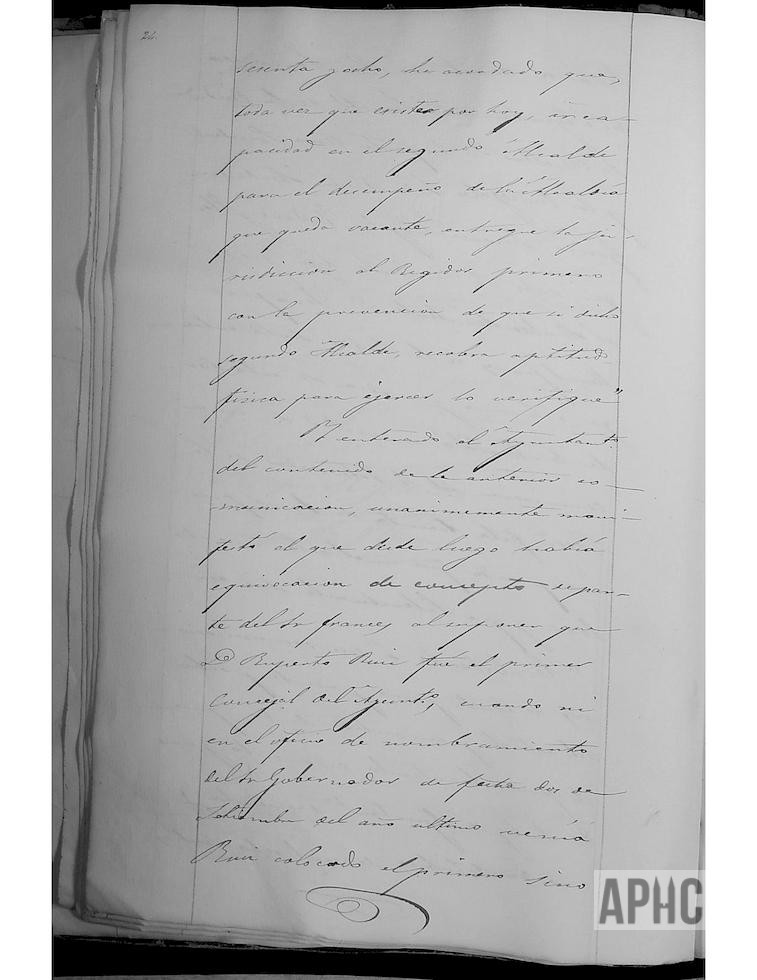 24.
sesenta y ocho, ha acordado que,
toda vez que existe por hoy, inca-
pacidad en el segundo Alcalde
para el desempeño de la Alcaldia
que queda vacante, entregue la ju-
risdiccion al Regidor primero
con la prevencion de que si dicho
segundo Alcalde, recobra aptitud
fisica para ejercer lo verifique"
Y enterado el Ayuntamto.
del contenido de la anterior co-
municacion, unanimemente mani-
festó el que desde luego habia
equivocacion de concepto depar-
te del Sr frances, al suponer que
Dn Ruperto Ruiz fué el primer
Concejal del Ayunto, cuando ni
en el oficio de nombramiento
del Sr Gobernador de fecha dos de
Setiembre del año ultimo venia
Ruiz colocado el primero sino
APHC